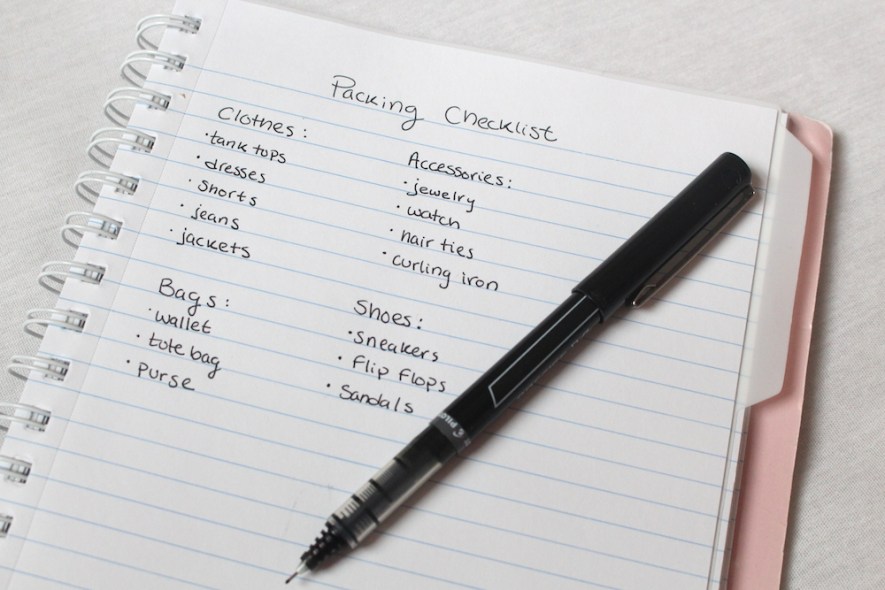 Packing Checklist
Clothes:
· tank tops
· dresses
· shorts
· jeans
· jackets
Accessories:
· jewelry
· watch
· hair ties
· curling iron
Bags:
· wallet
· tote bag
· purse
Shoes:
· sneakers
· flip flops
· Sandals
PILOT